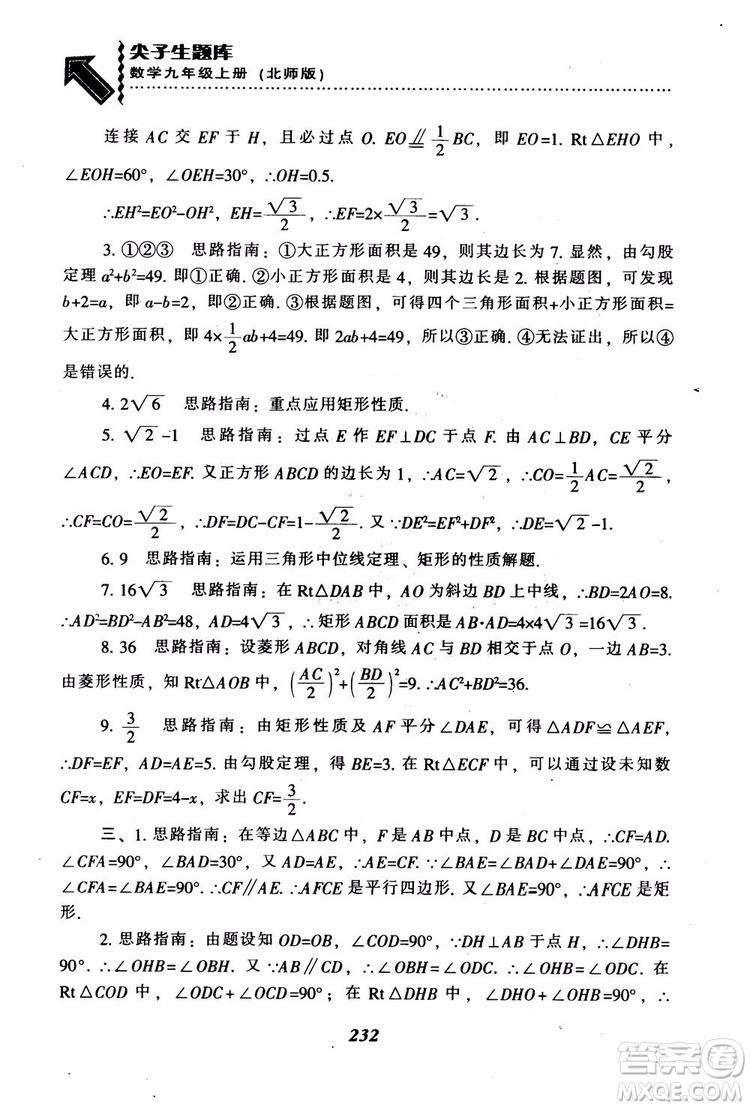 尖子生题库
数学九年级上册（北师版）
连接 AC 交 EF 于 H，且必过点 O. EO∥= 1/2 BC，即 EO=1. Rt△EHO 中，
∠EOH=60°，∠OEH=30°，∴OH=0.5.
∴EH²=EO²-OH²，EH=√3/2，∴EF=2×√3/2=√3.
3. ①②③　思路指南：①大正方形面积是 49，则其边长为 7. 显然，由勾股
定理 a²+b²=49. 即①正确. ②小正方形面积是 4，则边长是 2. 根据题图，可发现
b+2=a，即 a-b=2，即②正确. ③根据题图，可得四个三角形面积+小正方形面积=
大正方形面积，即 4×1/2ab+4=49. 即 2ab+4=49，所以③正确. ④无法证出，所以④
是错误的.
4. 2√6　思路指南：重点应用矩形性质.
5. √2-1　思路指南：过点 E 作 EF⊥DC 于点 F. 由 AC⊥BD，CE 平分
∠ACD，∴EO=EF. 又正方形 ABCD 的边长为 1，∴AC=√2，∴CO=1/2AC=√2/2，
∴CF=CO=√2/2，∴DF=DC-CF=1-√2/2. 又∵DE²=EF²+DF²，∴DE=√2-1.
6. 9　思路指南：运用三角形中位线定理、矩形的性质解题.
7. 16√3　思路指南：在 Rt△DAB 中，AO 为斜边 BD 上中线，∴BD=2AO=8.
∴AD²=BD²-AB²=48，AD=4√3，∴矩形 ABCD 面积是 AB·AD=4×4√3=16√3.
8. 36　思路指南：设菱形 ABCD，对角线 AC 与 BD 相交于点 O，一边 AB=3.
由菱形性质，知 Rt△AOB 中，(AC/2)²+(BD/2)²=9. ∴AC²+BD²=36.
9. 3/2　思路指南：由矩形性质及 AF 平分∠DAE，可得△ADF≌△AEF，
∴DF=EF，AD=AE=5. 由勾股定理，得 BE=3. 在 Rt△ECF 中，可通过设未知数
CF=x，EF=DF=4-x，求出 CF=3/2.
三、1. 思路指南：在等边△ABC 中，F 是 AB 中点，D 是 BC 中点，∴CF=AD.
∠CFA=90°，∠BAD=30°，∴AF=AE，∴AE=CF. ∵∠BAE=90°，∠CFA=90°，
∴∠CFB=∠BAE=90°. ∴CF∥AE，∴AFCE 是平行四边形. ∵∠BAE=90°，∴AFCE 是矩
形.
2. 思路指南：由题设知 OD=OB，∠COD=90°，∵DH⊥AB 于点 H，∴∠DHB=
90°. ∴∠OHB=∠OBH. 又∵AB∥CD，∴∠OBH=∠ODC. ∴∠OHB=∠ODC. 在
Rt△COD 中，∠ODC+∠OCD=90°；在 Rt△DHB 中，∠DHO+∠OHB=90°，∴
232
答案圈
MXQE.COM